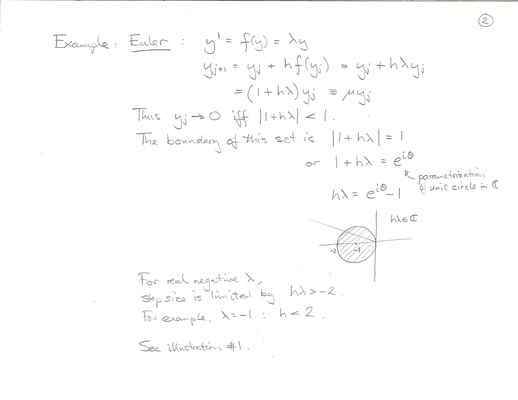 2
Example: Euler : y' = f(y) = λy
y_{j+1} = y_j + hf(y_j) = y_j + hλy_j
= (1+hλ)y_j ≡ μy_j
Thus y_j → 0 iff |1+hλ| < 1.
The boundary of this set is |1+hλ| = 1
or 1+hλ = e^{iθ}
parametrization
of unit circle in ℂ
hλ = e^{iθ} - 1
hλ ∈ ℂ
-2 -1
For real negative λ,
step size is limited by hλ > -2.
For example, λ = -1 : h < 2.
See illustration #1.